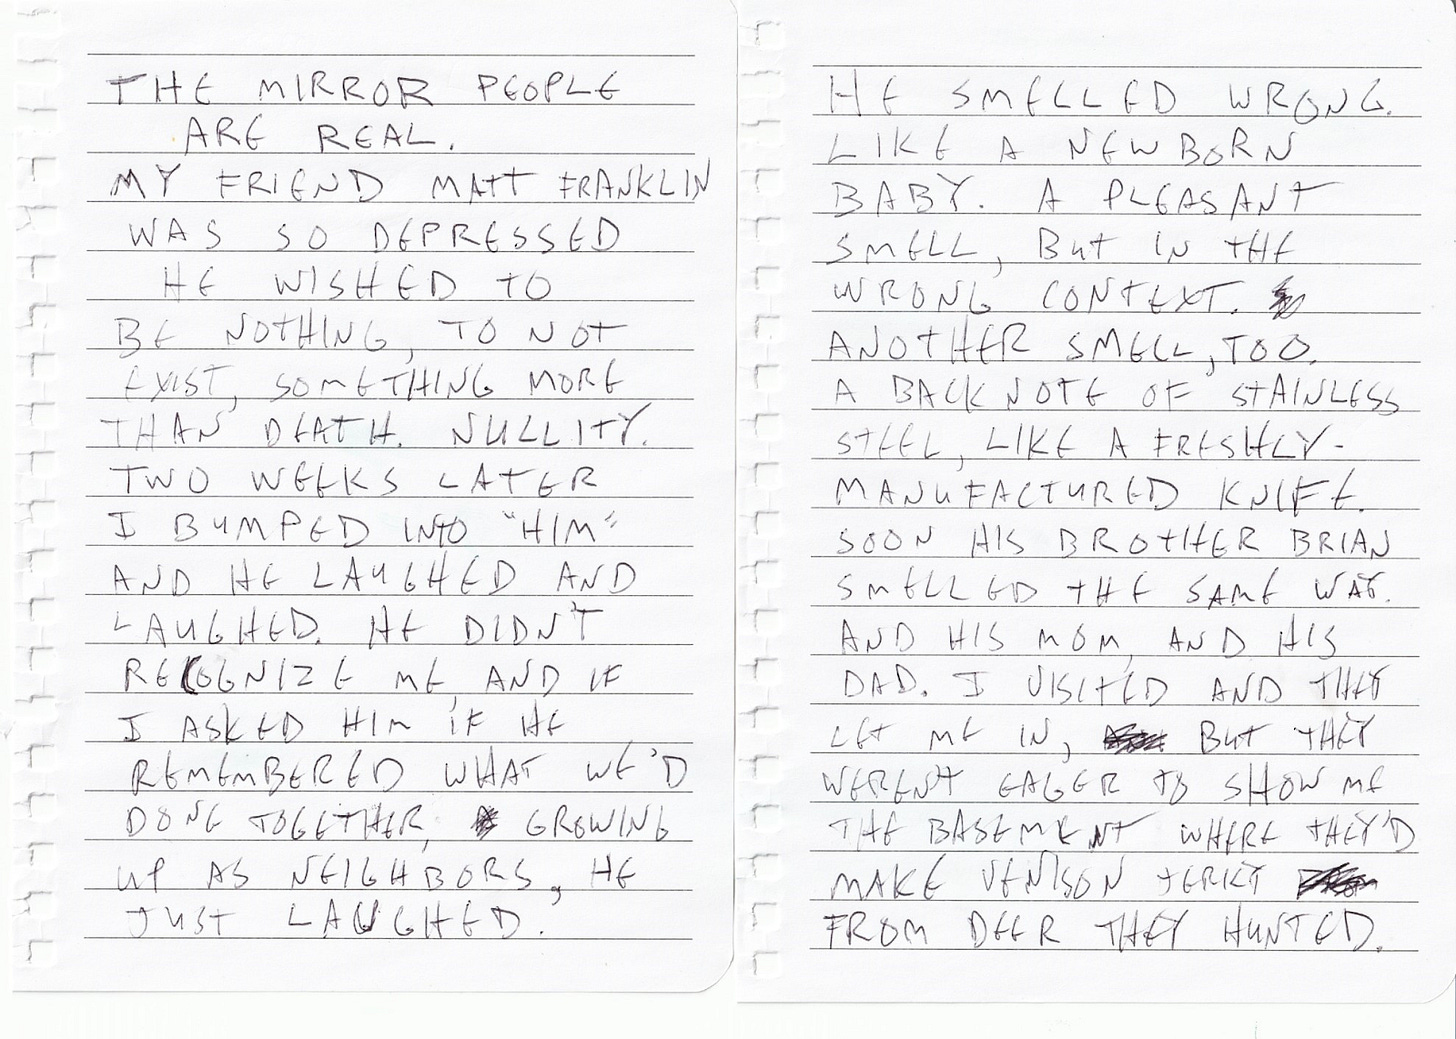 THE MIRROR PEOPLE
ARE REAL.
MY FRIEND MATT FRANKLIN
WAS SO DEPRESSED
HE WISHED TO
BE NOTHING, TO NOT
EXIST, SOMETHING MORE
THAN DEATH. NULLITY.
TWO WEEKS LATER
I BUMPED INTO "HIM"
AND HE LAUGHED AND
LAUGHED. HE DIDN'T
RECOGNIZE ME, AND IF
I ASKED HIM IF HE
REMEMBERED WHAT WE'D
DONE TOGETHER, GROWING
UP AS NEIGHBORS, HE
JUST LAUGHED.
HE SMELLED WRONG.
LIKE A NEWBORN
BABY. A PLEASANT
SMELL, BUT IN THE
WRONG CONTEXT.
ANOTHER SMELL, TOO.
A BACK NOTE OF STAINLESS
STEEL, LIKE A FRESHLY-
MANUFACTURED KNIFE.
SOON HIS BROTHER BRIAN
SMELLED THE SAME WAY.
AND HIS MOM, AND HIS
DAD. I VISITED AND THEY
LET ME IN, BUT THEY
WEREN'T EAGER TO SHOW ME
THE BASEMENT WHERE THEY'D
MAKE VENISON JERKY
FROM DEER THEY HUNTED.